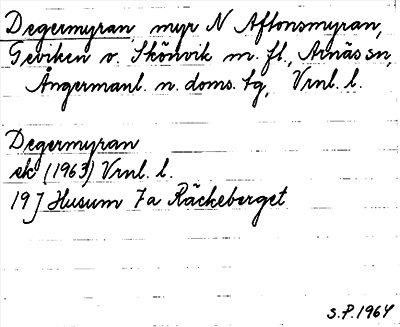 Degermyran myr N Aftonsmyran,
Geviken o. Skönvik m. fl., Arnäs sn,
Ångermanl. n. doms. tg, Vrnl. l.
Degermyran
ek (1963) Vrnl. l.
19 J Husum 7a Räckeberget
S.P. 1964